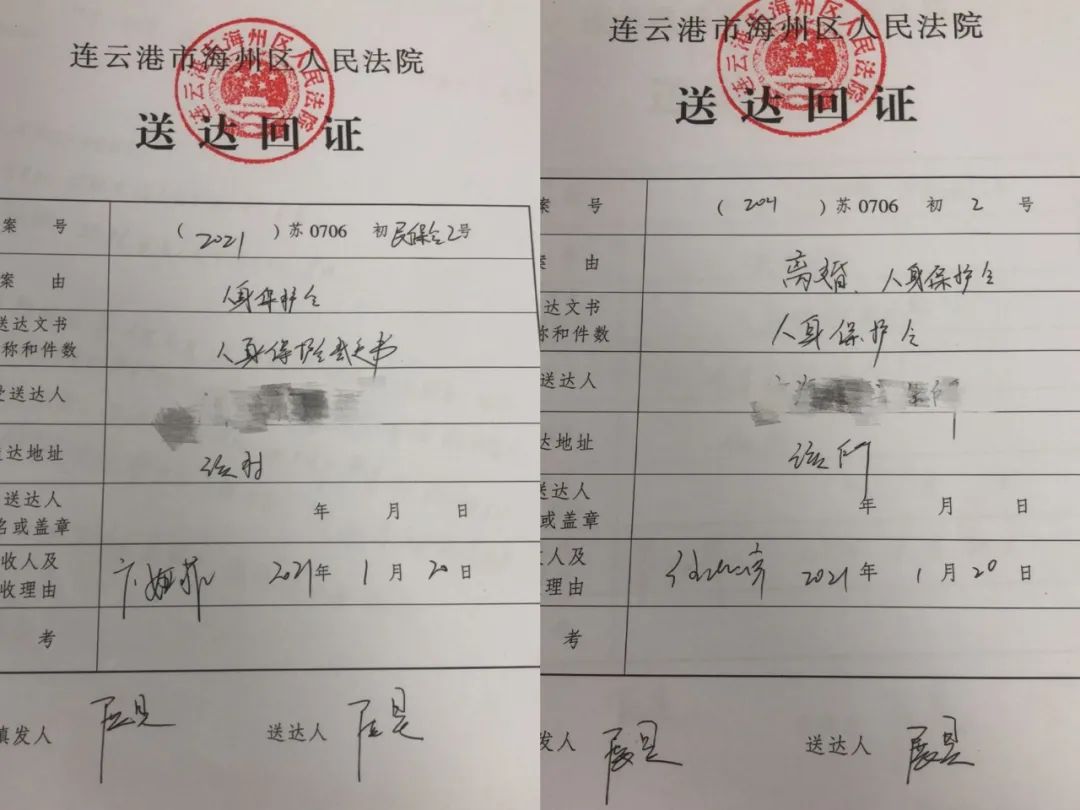 连云港市海州区人民法院
送达回证
案 号 (2021)苏0706 初民保令2号
案 由 人身保护令
送达文书
称和件数 人身保护令裁定书
受送达人
达地址 法院
送达人
名或盖章 年 月 日
收人及
收理由 2021年1月20日
考
填发人 送达人
连云港市海州区人民法院
送达回证
案 号 (2021)苏0706 初 2 号
案 由 离婚、人身保护令
达文书
称和件数 人身保护令
送达人
达地址 法院
送达人
或盖章 年 月 日
人及
理由 2021年1月20日
考
发人 送达人